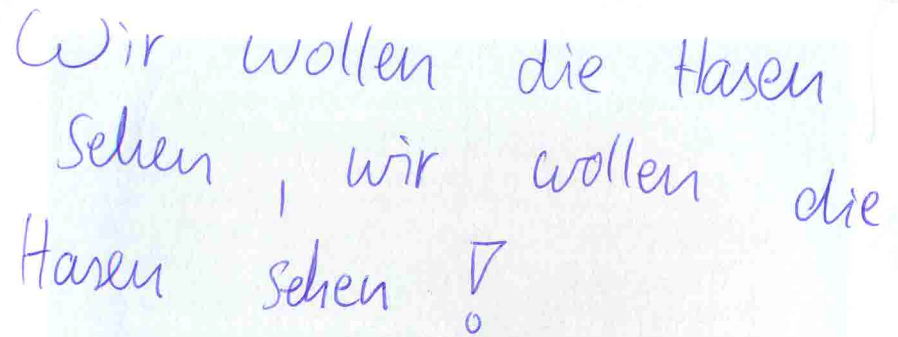 Wir wollen die Hasen
sehen, wir wollen die
Hasen sehen!